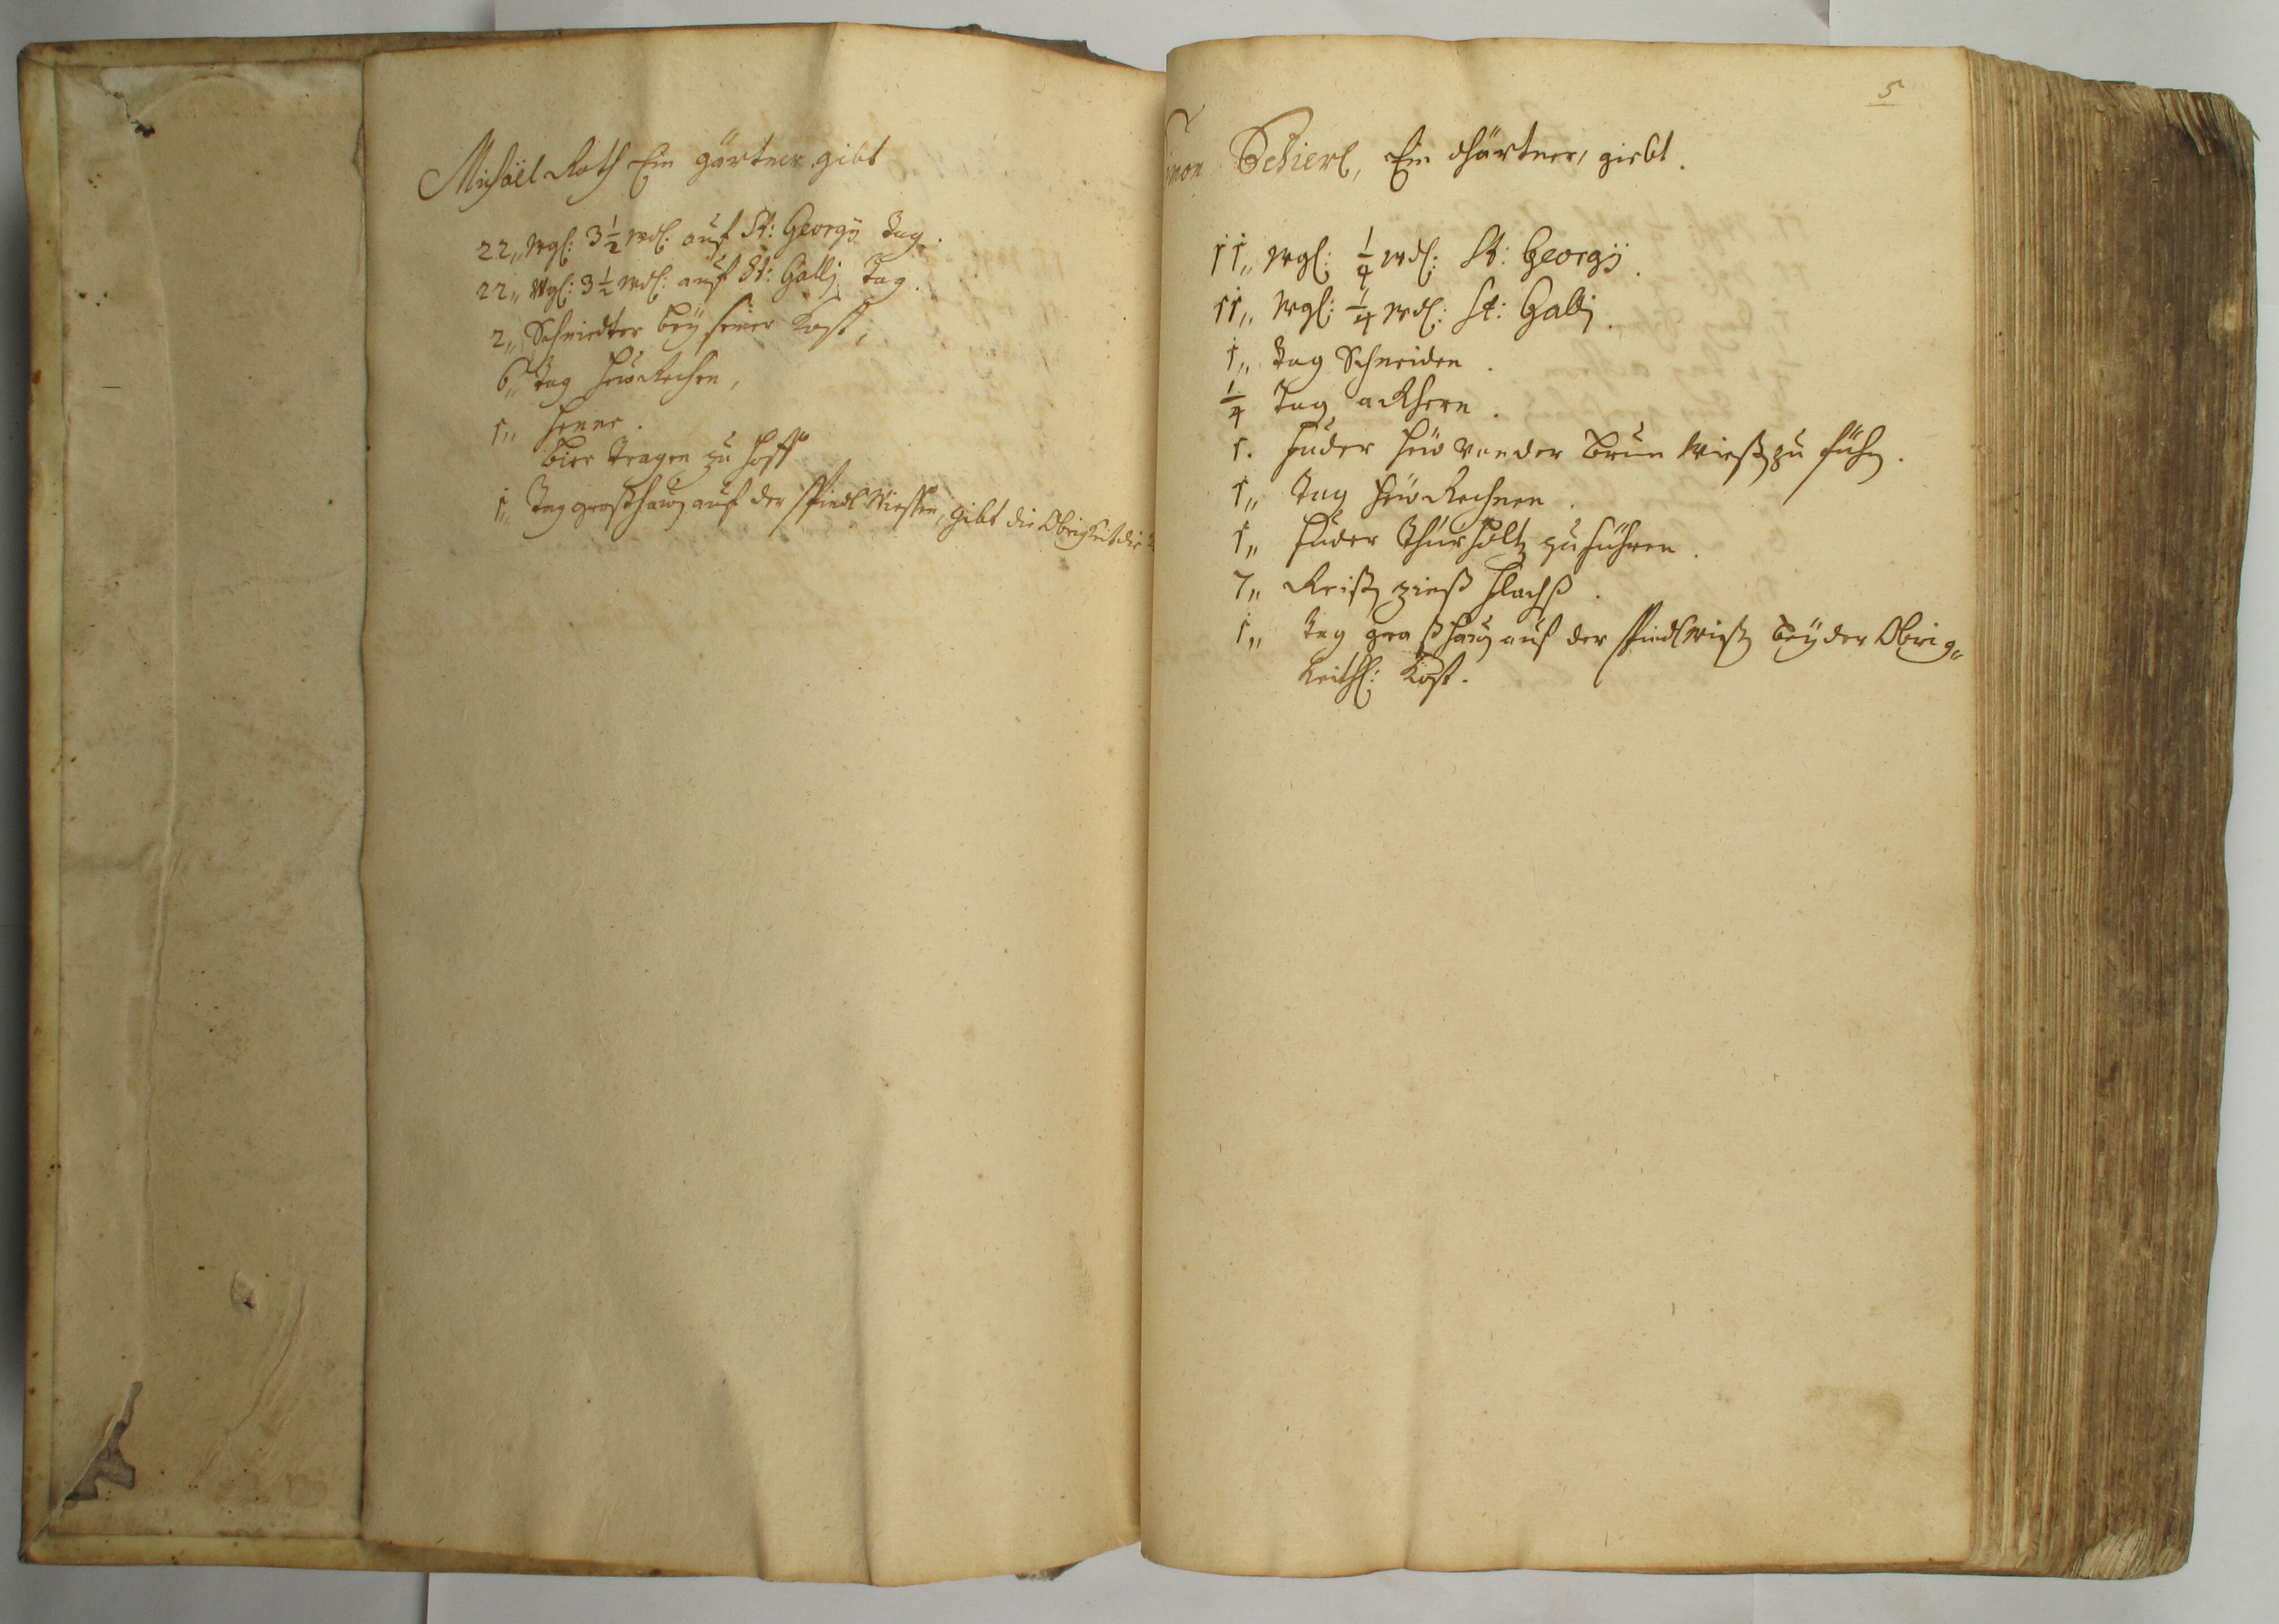 Michäel Roth Ein gärtner gibt
22„ Wgl: 3½ wd: auf St: Georgÿ Tag.
22„ Wgl: 3½ wd: auf St: Gallj Tag.
2„ Schniedter beÿ seiner Kost,
6„ Tag heüRechen,
1„ henne.
bier tragen zu hoff
1„ Tag graßhawen auf der Wiessen, gibt die Obrigkeit die
5
Schierl, Ein Gärtner, giebt.
11„ Wgl: ¼ wd: St: Georgÿ.
11„ Wgl: ¼ wd: St: Gallj.
1„ Tag Schneiden.
¼ Tag ackhern.
1. fuder heü von der Brun Wieß zu führn.
1„ Tag heü Rechnen.
1„ fuder Thürholtz zu führen.
7„ Reißt flachß.
1„ Tag graßhawen auf der beÿ der Obrig„
keithl: Kost.